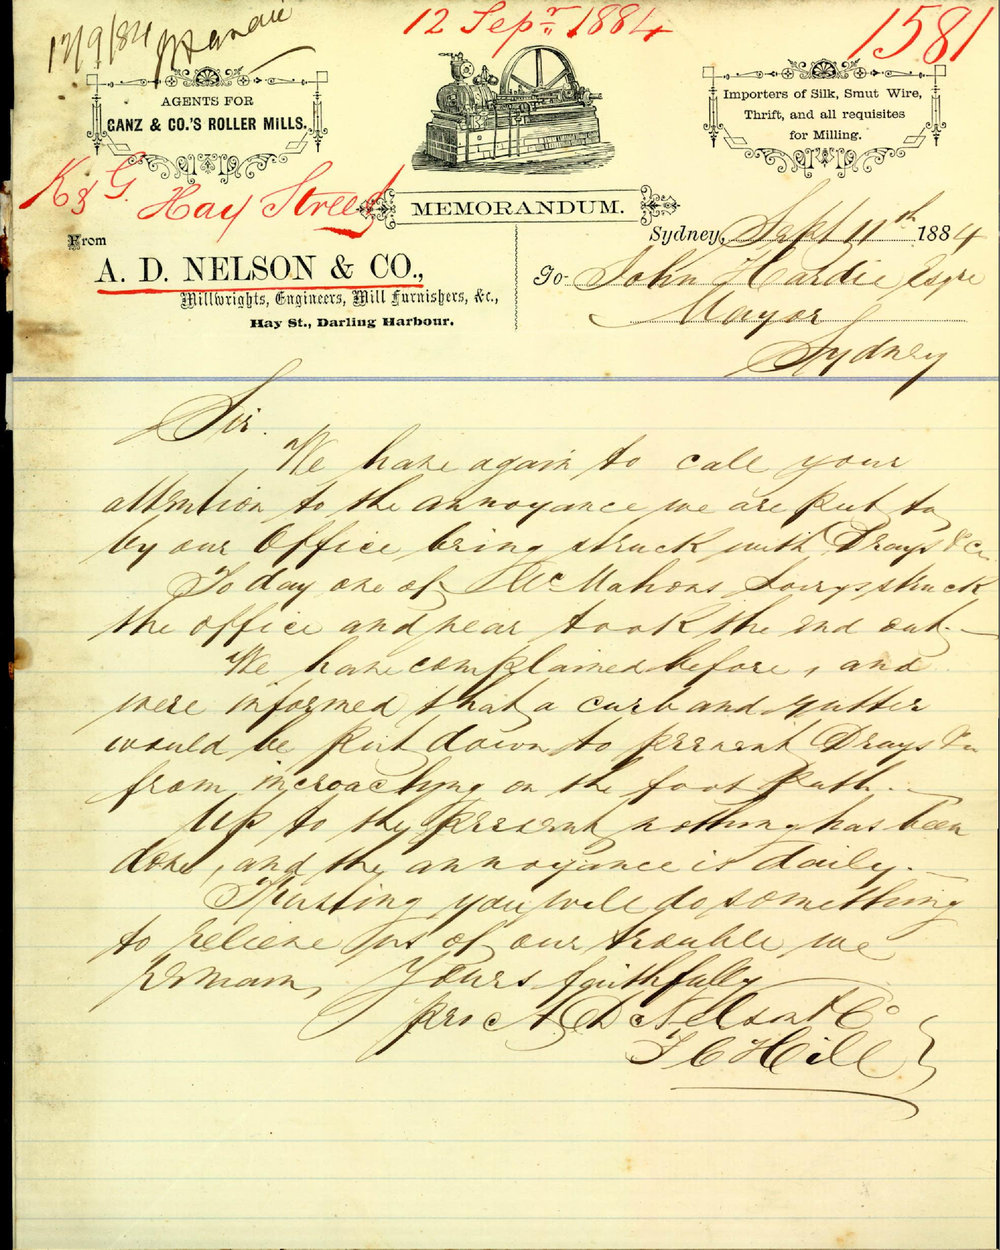 12/9/84 J Hardie
12 Sepr 1884
1581
AGENTS FOR
GANZ & CO.'S ROLLER MILLS.
Importers of Silk, Smut Wire,
Thrift, and all requisites
for Milling.
K & G. Hay Street
MEMORANDUM.
From
A. D. NELSON & CO.,
Millwrights, Engineers, Mill Furnishers, &c.,
Hay St., Darling Harbour.
Sydney, Sept 11th 1884
To John Hardie Esqre
Mayor
Sydney
Sir.
We have again to call your
attention to the annoyance we are put to
by our Office being struck with Drays &c
To day one of McMahons Lorrys struck
the office and near took the end out.
We have complained before, and
were informed that a curb and gutter
would be put down to prevent Drays &c
from incroaching on the foot path.
Up to the present nothing has been
done, and the annoyance is daily.
Trusting you will do something
to relieve us of our trouble we
remain, Yours faithfully
pro A D Nelson & Co
T C Hill